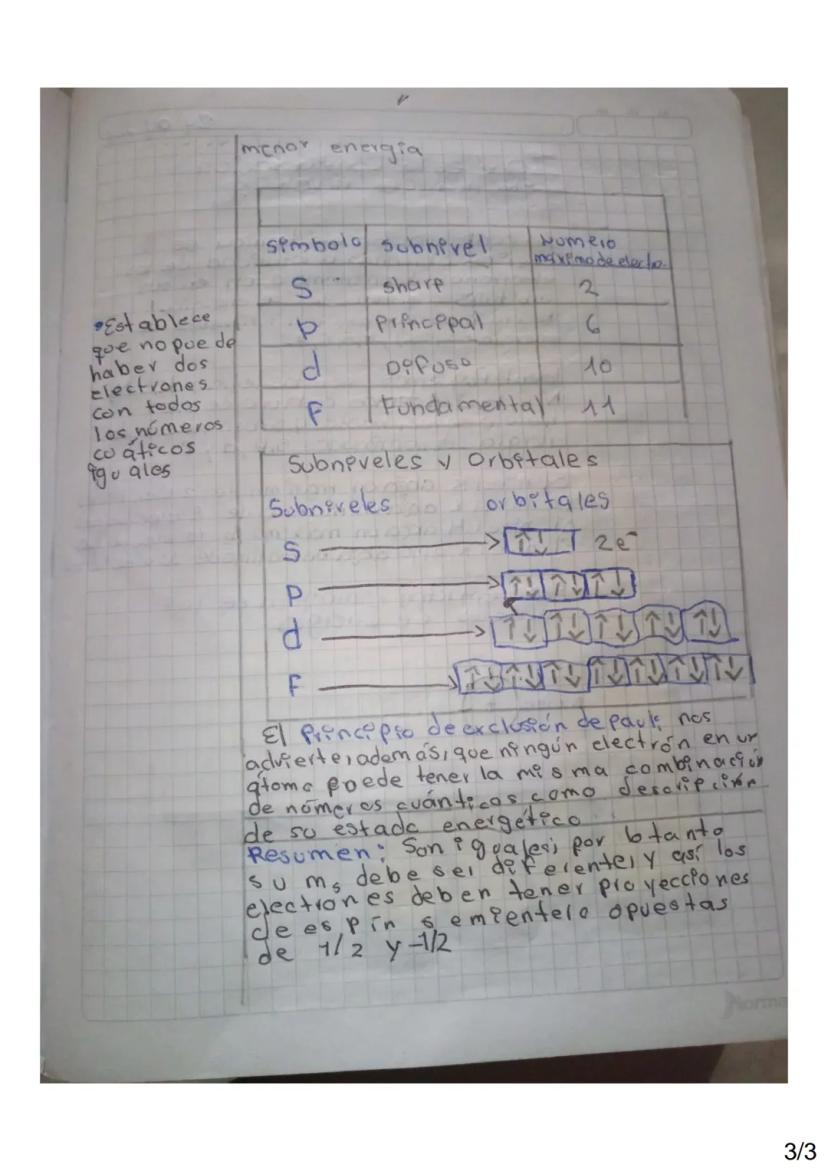 menor energía
símbolo subnivel Numero
máximo de electro.
S sharp 2
p principal 6
d Difuso 10
F Fundamental 11
•Establece
que no puede
haber dos
electrones
con todos
los números
cuáticos
iguales
Subniveles y Orbitales
Subniveles orbitales
S ↑↓ 2e⁻
p ↑↓ ↑↓ ↑↓
d ↑↓ ↑↓ ↑↓ ↑↓ ↑↓
F ↑↓ ↑↓ ↑↓ ↑↓ ↑↓ ↑↓ ↑↓
El principio de exclusión de Pauli nos
advierte, además, que ningún electrón en un
átomo puede tener la misma combinación
de números cuánticos como descripción
de su estado energético
Resumen: Son iguales; por lo tanto
su ms debe ser diferente, y así los
electrones deben tener proyecciones
de espín semientero opuestas
de 1/2 y -1/2
Norma
3/3